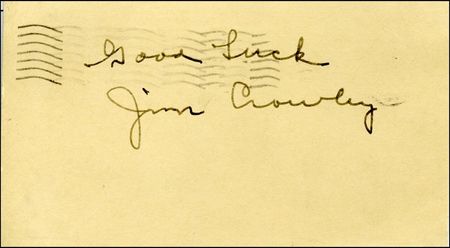 Good Luck
Jim Crowley